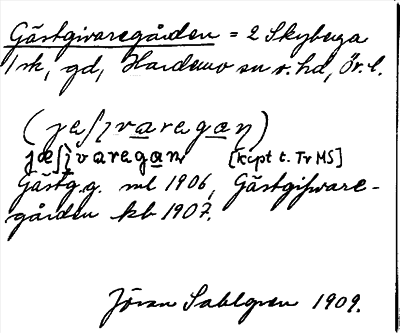 Gästgivaregården = 2 Skyberga
1 sk, gd, Hardemo sn o. hd, Ör. l.
(jeʃɪvaregaɳ)
jæʃɪvaregan [kipt t. Tr MS]
Gästg.g. ml 1906, Gästgifvare-
gården kb 1907.
Jöran Sahlgren 1909.